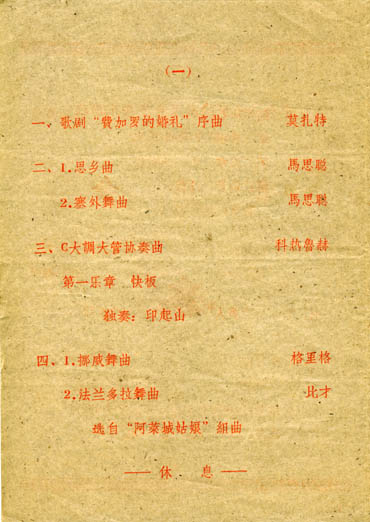 (一)
一、歌剧“費加罗的婚礼”序曲 莫扎特
二、1.思乡曲 馬思聪
2.塞外舞曲 馬思聪
三、C大調大管协奏曲 科热魯赫
第一乐章 快板
独奏：印起山
四、1.挪威舞曲 格里格
2.法兰多拉舞曲 比才
选自“阿萊城姑娘”組曲
—— 休 息 ——